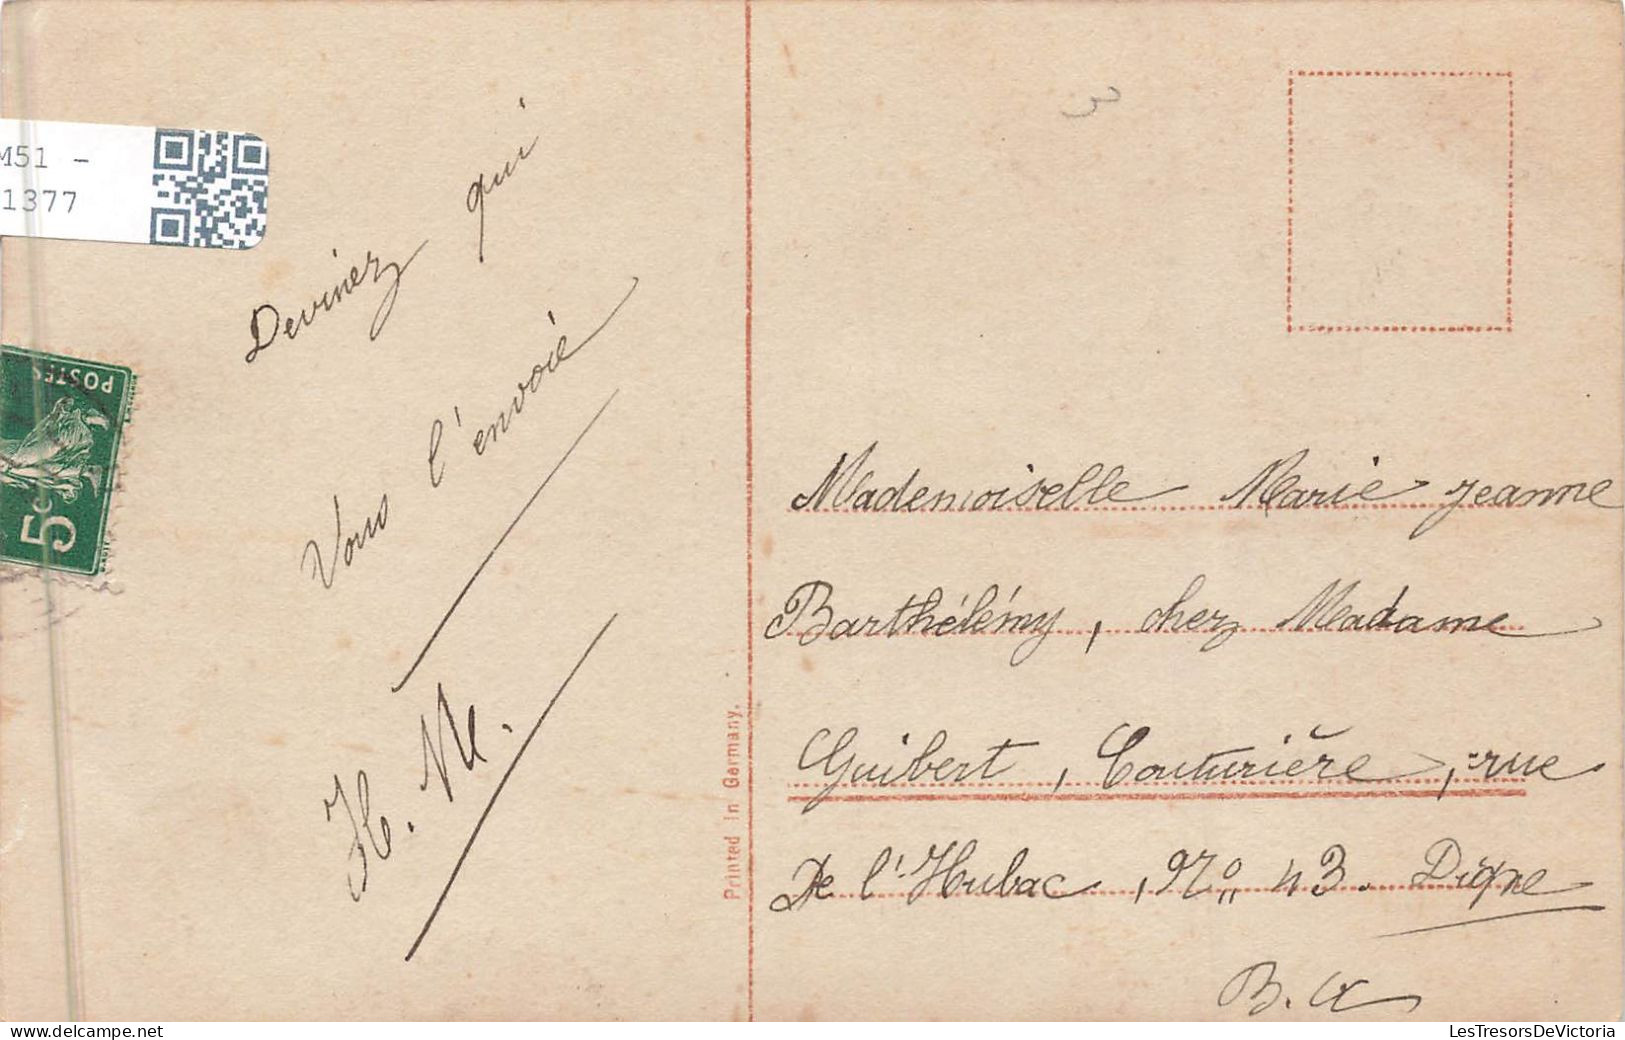 M51 -
1377
POSTES
5c
Devinez qui
Vous l'envoie
H. M.
Printed in Germany.
Mademoiselle Marie jeanne
Barthélémy, chez Madame
Guibert, Couturière, rue
De l'Hubac, No 43. Digne
B. A
LesTresorsDeVictoria